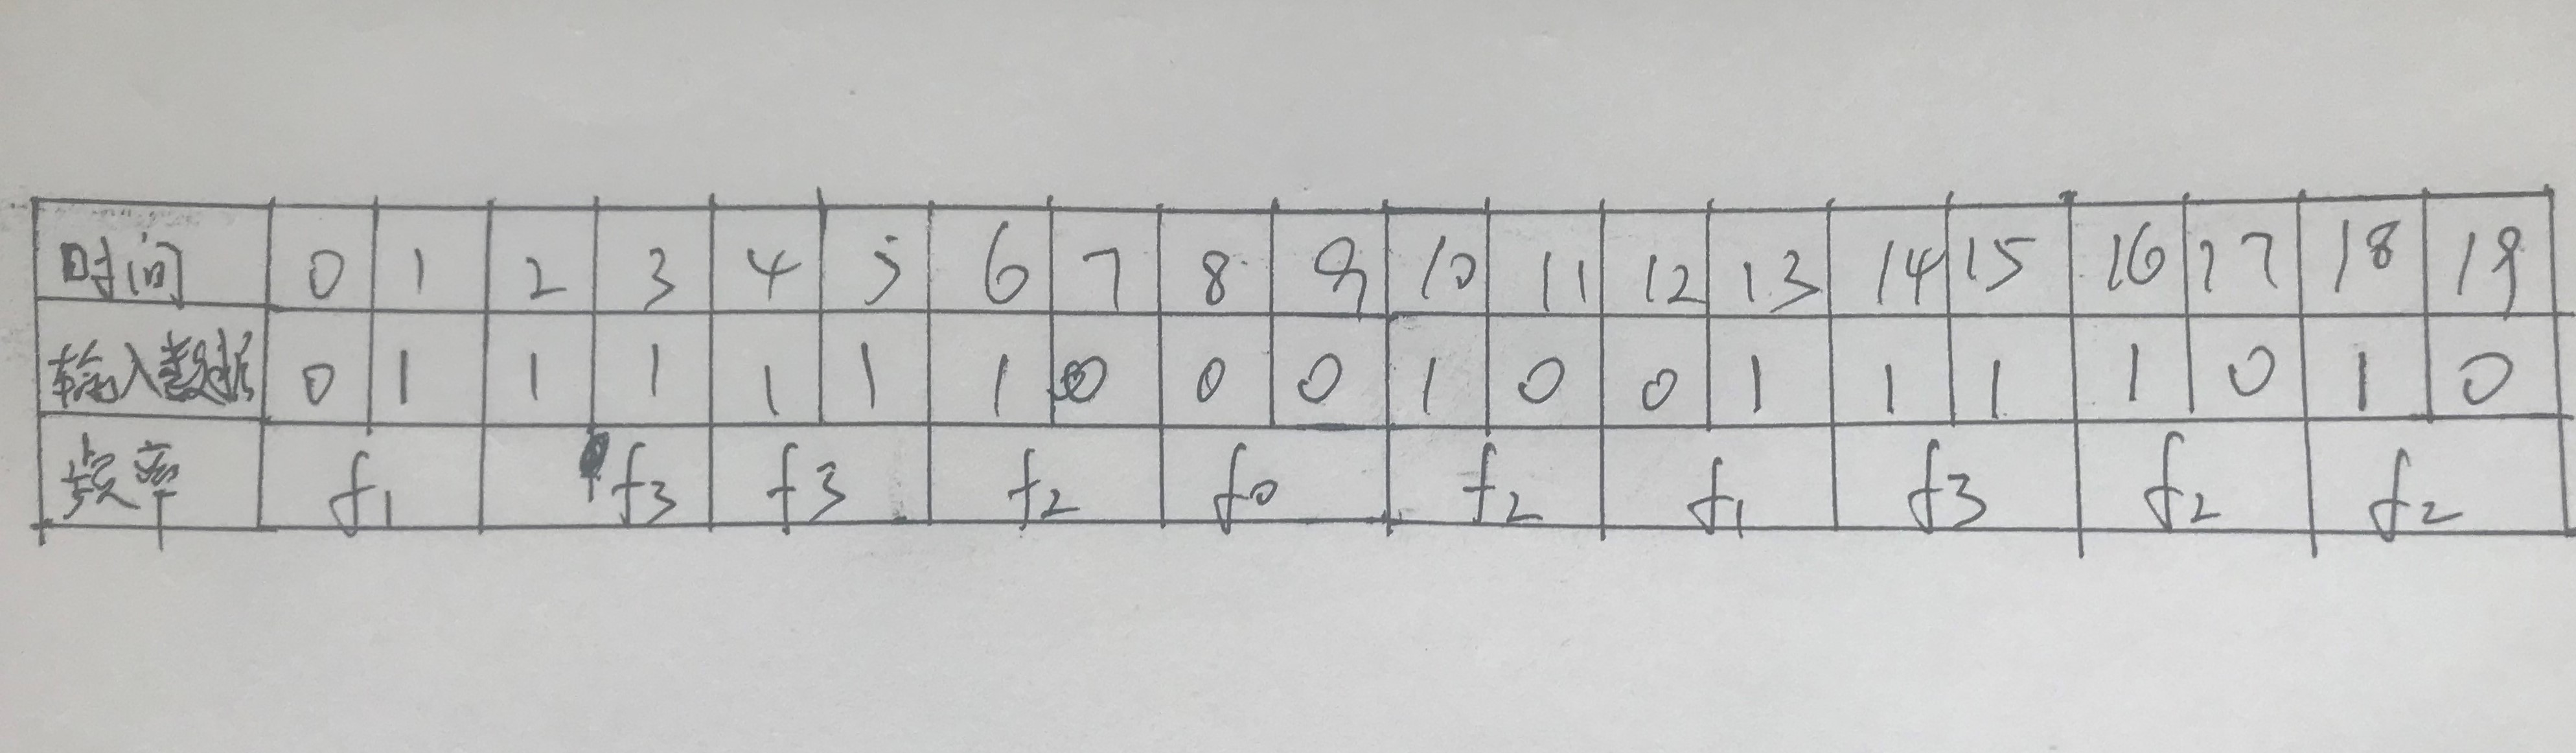 时间 0 1 2 3 4 5 6 7 8 9 10 11 12 13 14 15 16 17 18 19
输入数据 0 1 1 1 1 1 1 0 0 0 1 0 0 1 1 1 1 0 1 0
频率 f1 f3 f3 f2 f0 f2 f1 f3 f2 f2